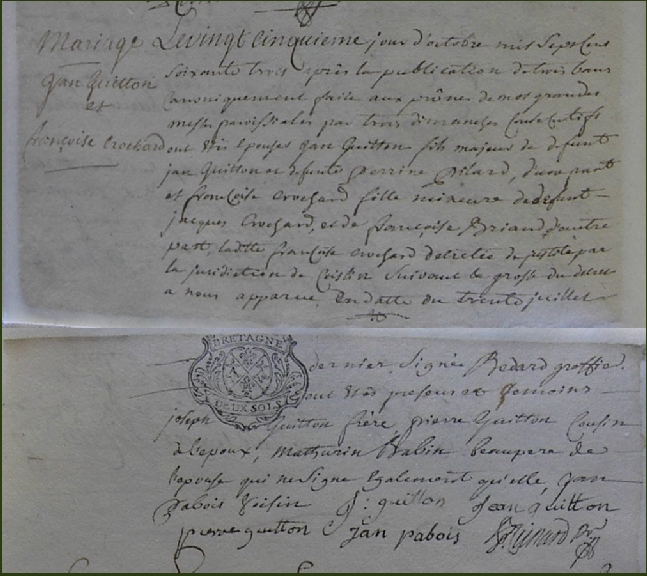 Mariage
jan Guitton
et
françoise Crochard
Le vingt cinquieme jour d'octobre mil Sept Cent
soixante trois après la publication de trois bans
canoniquement faite aux prônes de nos grandes
messes paroissiales par trois dimanches Consecutifs
ont Eté Epousés jan Guitton fils majeur de defunt
jan Guitton et defunte perrine pilard, d'une part
et françoise Crochard fille mineure de defunt
jacques Crochard, et de françoise Briand d'autre
part, laditte françoise Crochard decretée de justice par
la jurisdiction de Suivant la grosse du decret
a nous apparue, En datte du trente juillet
BRETAGNE
DEUX SOLS
dernier Signée Bedard greffier.
ont Etés presens et temoins
joseph Guitton frère, pierre Guitton Cousin
de l'epoux, Mathurin Babin beaupere de
l'epouse qui ne Signe Egalement qu'elle, jan
pabois Voisin J: guitton Jean guitton
pierre guitton jan pabois